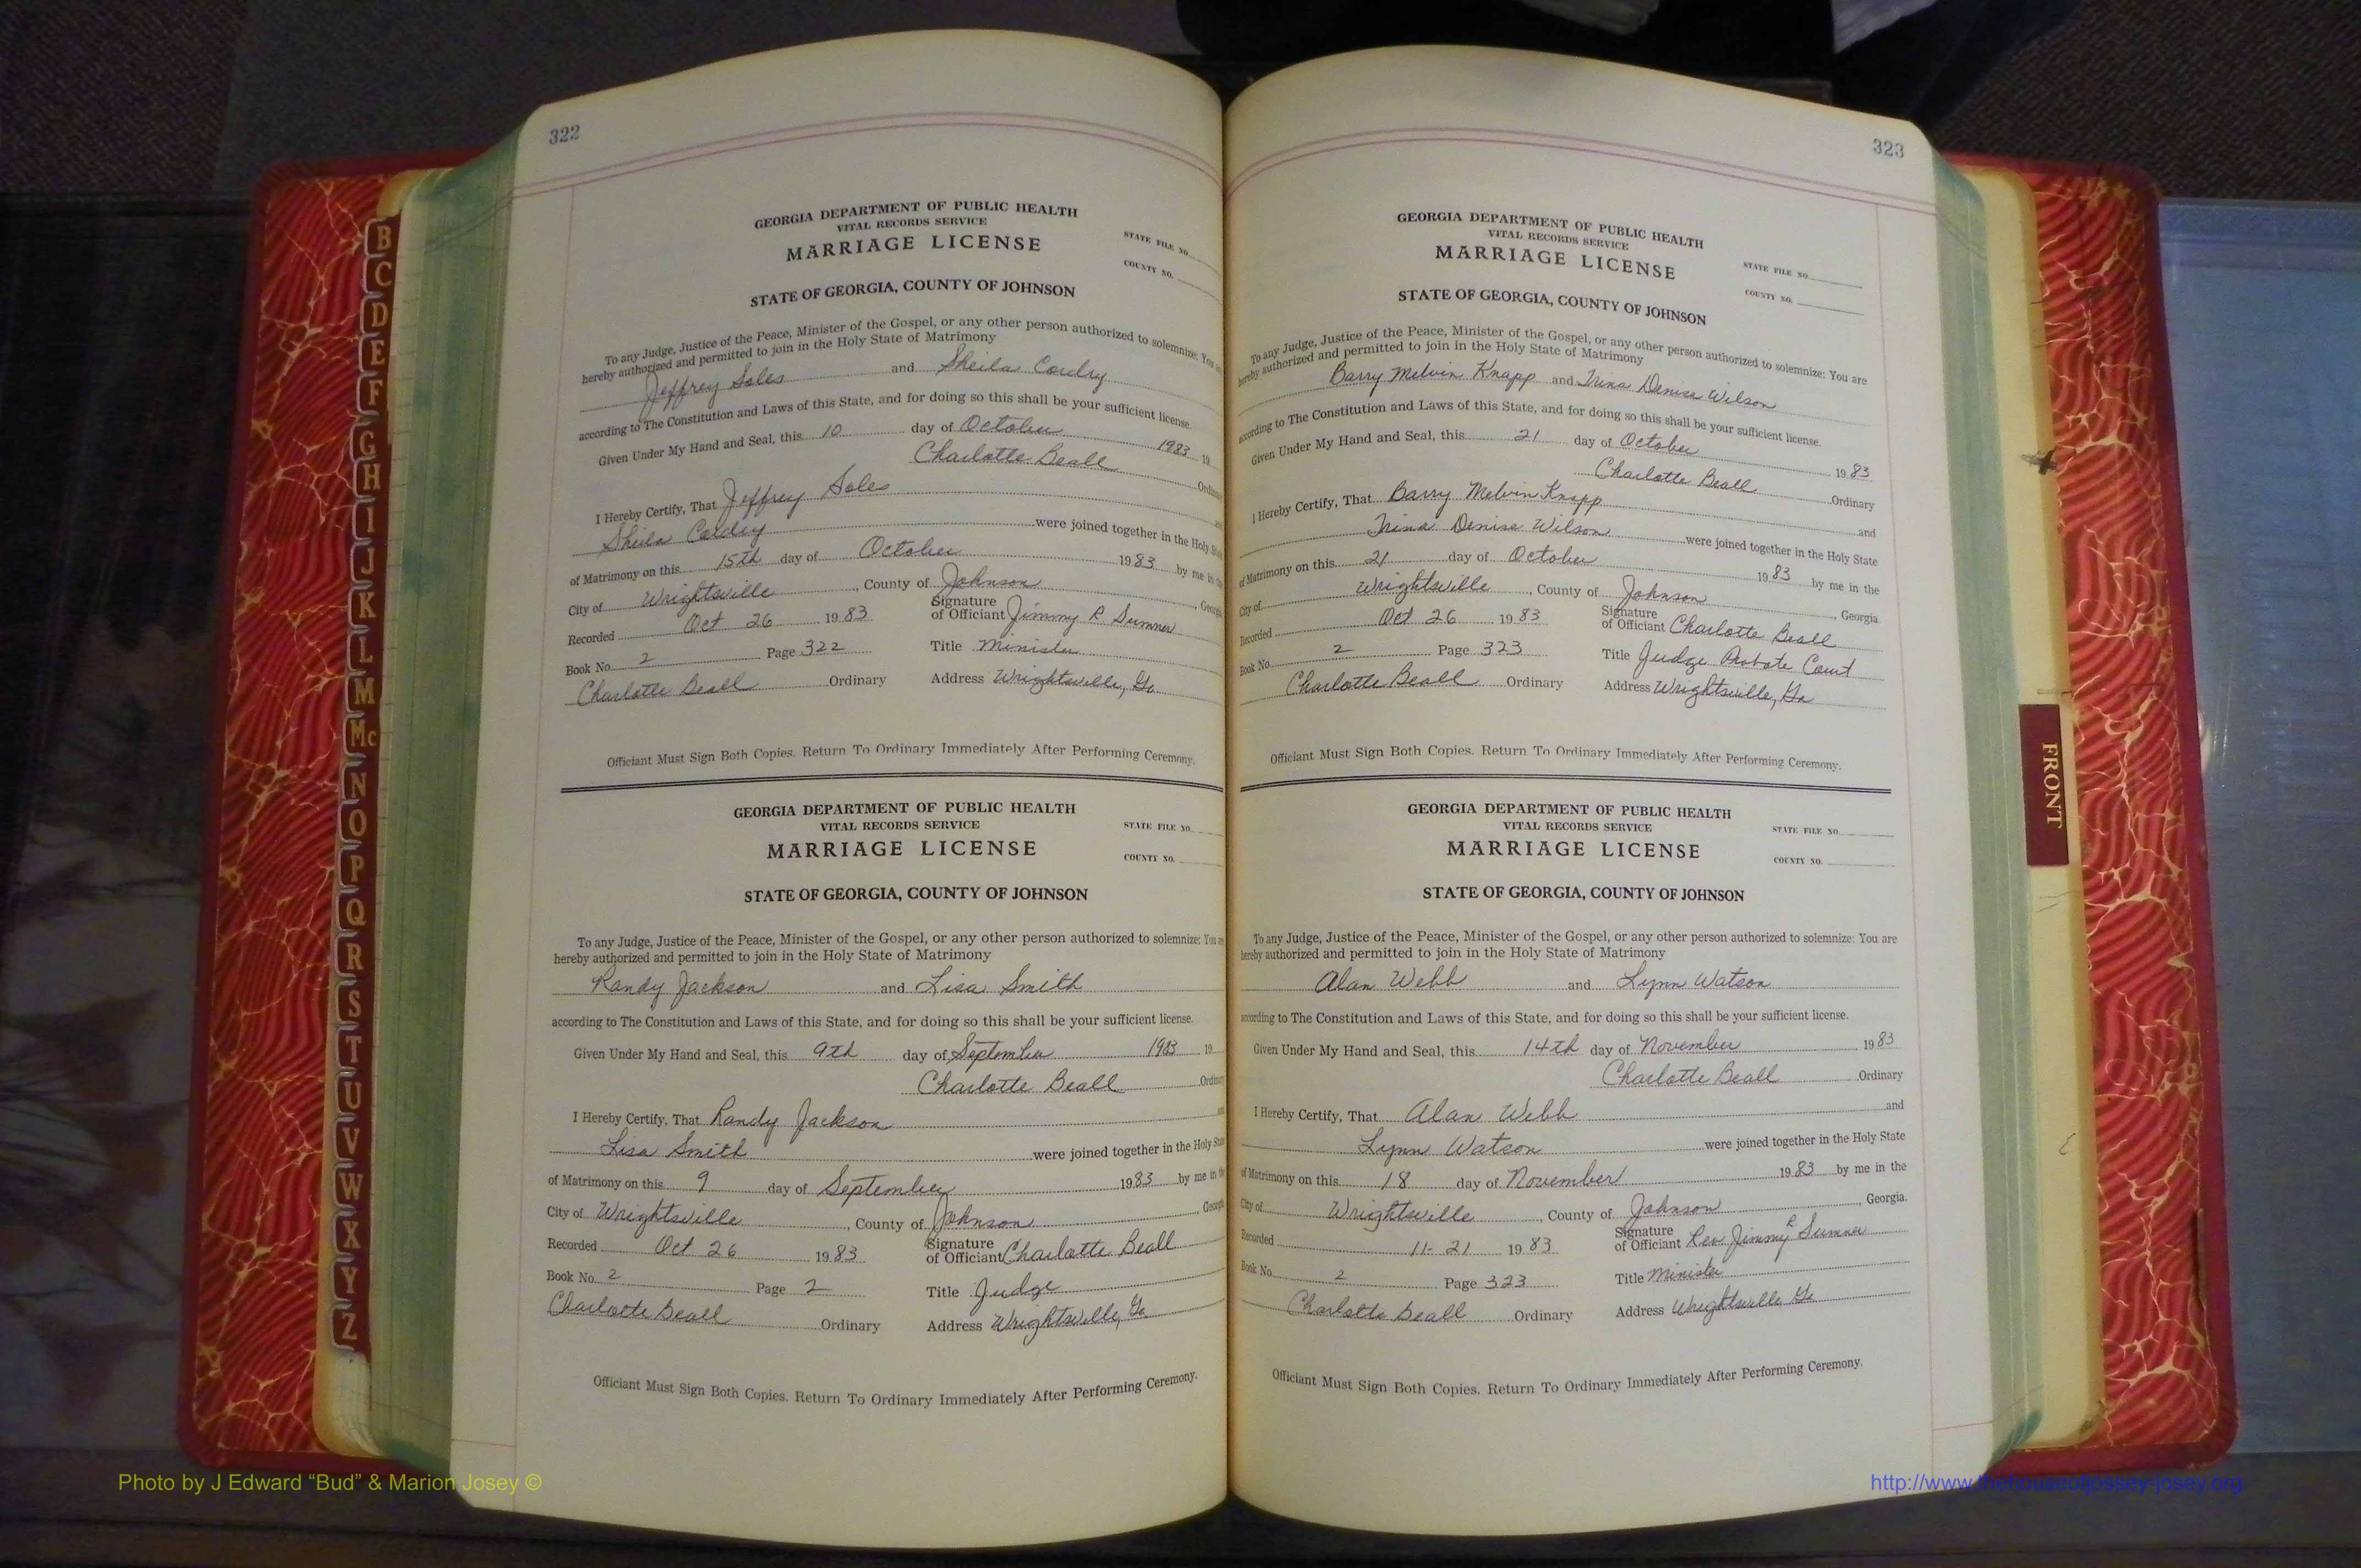 322
GEORGIA DEPARTMENT OF PUBLIC HEALTH
VITAL RECORDS SERVICE
MARRIAGE LICENSE
STATE FILE NO.
COUNTY NO.
STATE OF GEORGIA, COUNTY OF JOHNSON
To any Judge, Justice of the Peace, Minister of the Gospel, or any other person authorized to solemnize: You
hereby authorized and permitted to join in the Holy State of Matrimony
Jeffrey Soles and Sheila
according to The Constitution and Laws of this State, and for doing so this shall be your sufficient license.
Given Under My Hand and Seal, this 10 day of October 1983 19
Charlotte Beall
I Hereby Certify, That Jeffrey Soles
Sheila were joined together in the Holy
of Matrimony on this 15th day of October 1983 by me in
City of Wrightsville, County of Johnson
Recorded Oct 26 1983 Signature of Officiant Jimmy R Sumner
Book No. 2 Page 322 Title Minister
Charlotte Beall Ordinary Address Wrightsville, Ga
Officiant Must Sign Both Copies. Return To Ordinary Immediately After Performing Ceremony.
GEORGIA DEPARTMENT OF PUBLIC HEALTH
VITAL RECORDS SERVICE
MARRIAGE LICENSE
STATE FILE NO.
COUNTY NO.
STATE OF GEORGIA, COUNTY OF JOHNSON
To any Judge, Justice of the Peace, Minister of the Gospel, or any other person authorized to solemnize: You
hereby authorized and permitted to join in the Holy State of Matrimony
Randy Jackson and Lisa Smith
according to The Constitution and Laws of this State, and for doing so this shall be your sufficient license.
Given Under My Hand and Seal, this 9th day of September 1983 19
Charlotte Beall
I Hereby Certify, That Randy Jackson
Lisa Smith were joined together in the Holy
of Matrimony on this 9 day of September 1983 by me in
City of Wrightsville, County of Johnson
Recorded Oct 26 1983 Signature of Officiant Charlotte Beall
Book No. 2 Page 2 Title Judge
Charlotte Beall Ordinary Address Wrightsville, Ga
Officiant Must Sign Both Copies. Return To Ordinary Immediately After Performing Ceremony.
323
GEORGIA DEPARTMENT OF PUBLIC HEALTH
VITAL RECORDS SERVICE
MARRIAGE LICENSE
STATE FILE NO.
COUNTY NO.
STATE OF GEORGIA, COUNTY OF JOHNSON
To any Judge, Justice of the Peace, Minister of the Gospel, or any other person authorized to solemnize: You are
hereby authorized and permitted to join in the Holy State of Matrimony
Barry Melvin Knapp and Trina Denise Wilson
according to The Constitution and Laws of this State, and for doing so this shall be your sufficient license.
Given Under My Hand and Seal, this 21 day of October 1983
Charlotte Beall Ordinary
I Hereby Certify, That Barry Melvin Knapp and
Trina Denise Wilson were joined together in the Holy State
of Matrimony on this 21 day of October 1983 by me in the
City of Wrightsville, County of Johnson, Georgia
Recorded Oct 26 1983 Signature of Officiant Charlotte Beall
Book No. 2 Page 323 Title Judge Probate Court
Charlotte Beall Ordinary Address Wrightsville, Ga
Officiant Must Sign Both Copies. Return To Ordinary Immediately After Performing Ceremony.
GEORGIA DEPARTMENT OF PUBLIC HEALTH
VITAL RECORDS SERVICE
MARRIAGE LICENSE
STATE FILE NO.
COUNTY NO.
STATE OF GEORGIA, COUNTY OF JOHNSON
To any Judge, Justice of the Peace, Minister of the Gospel, or any other person authorized to solemnize: You are
hereby authorized and permitted to join in the Holy State of Matrimony
Alan Webb and Lynn Watson
according to The Constitution and Laws of this State, and for doing so this shall be your sufficient license.
Given Under My Hand and Seal, this 14th day of November 1983
Charlotte Beall Ordinary
I Hereby Certify, That Alan Webb and
Lynn Watson were joined together in the Holy State
of Matrimony on this 18 day of November 1983 by me in the
City of Wrightsville, County of Johnson, Georgia.
Recorded 11-21 1983 Signature of Officiant Rev Jimmy R Sumner
Book No. 2 Page 323 Title Minister
Charlotte Beall Ordinary Address Wrightsville Ga
Officiant Must Sign Both Copies. Return To Ordinary Immediately After Performing Ceremony.
B
C
D
E
F
G
H
I
J
K
L
M
Mc
N
O
P
Q
R
S
T
U
V
W
X
Y
Z
FRONT
Photo by J Edward “Bud” & Marion Josey ©
http://www.thehouseofjossey-josey.org